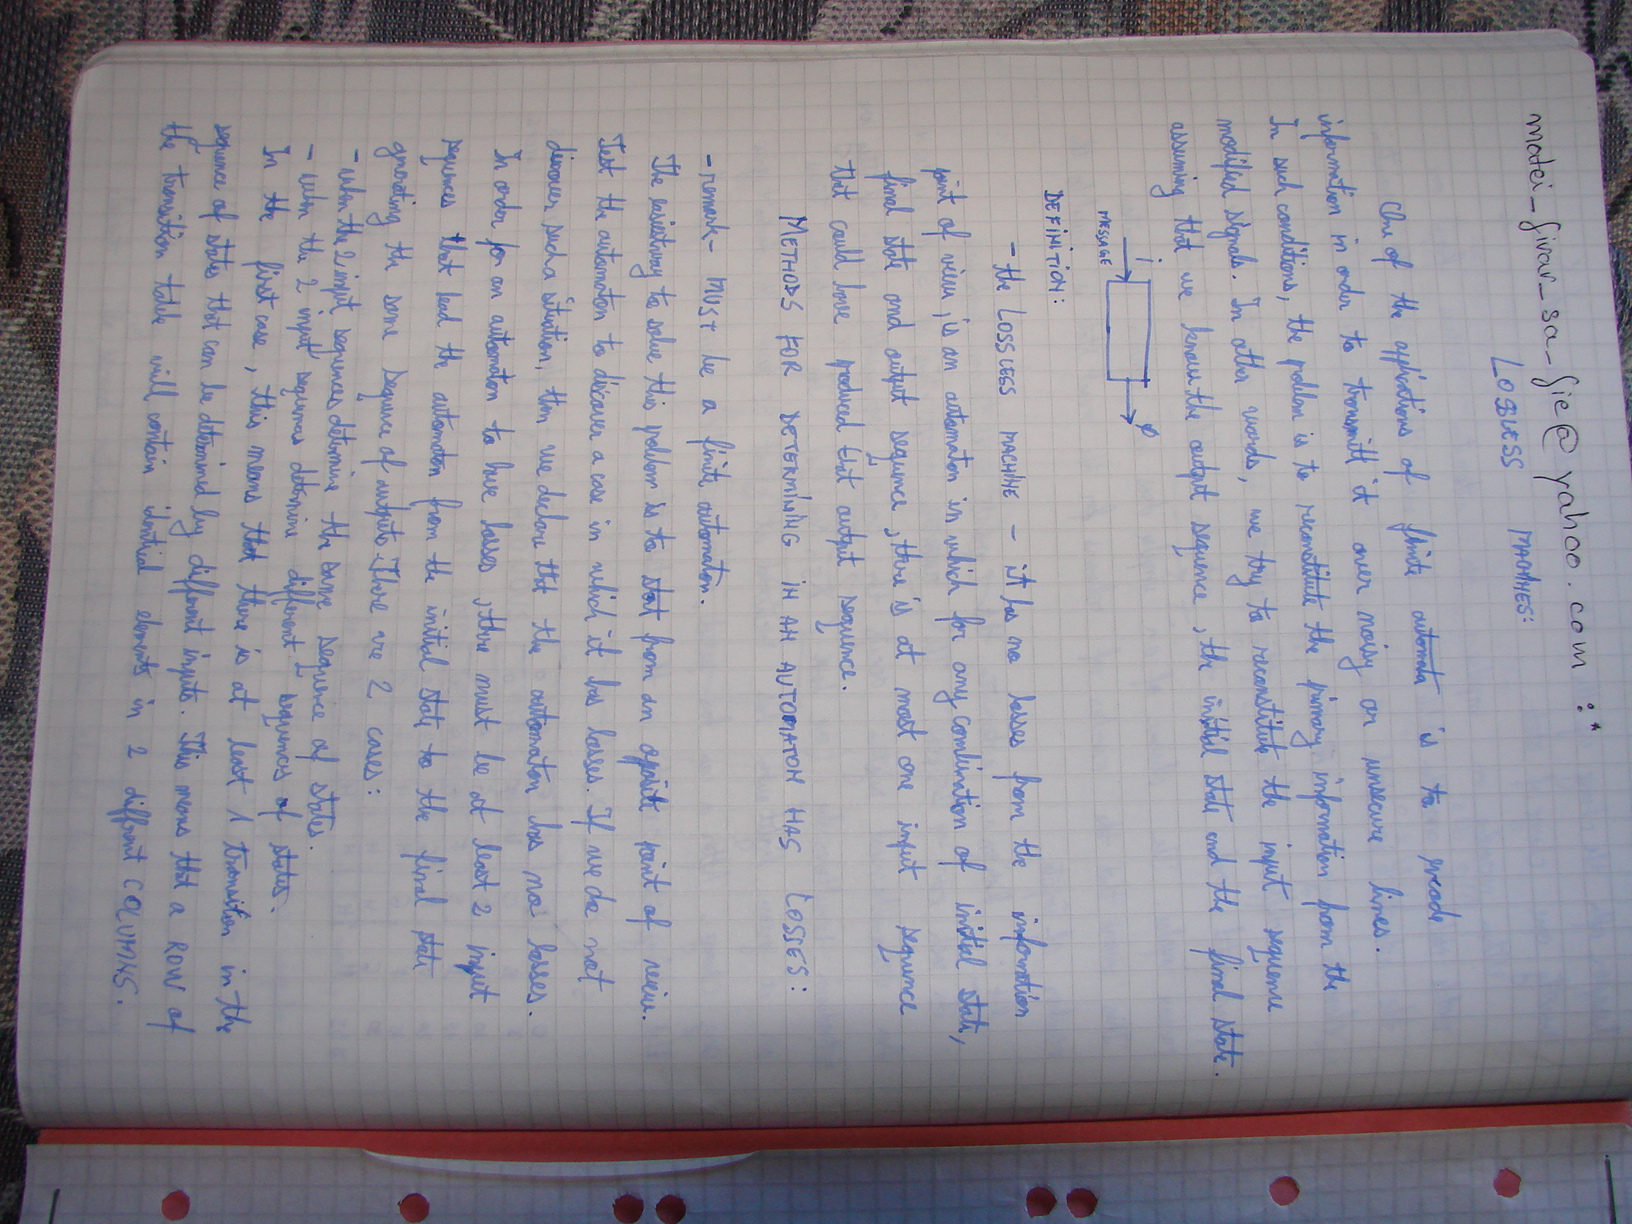 matei_givan_sa_fie@yahoo.com :*
LOSSLESS MACHINES:
One of the applications of finite automata is to encode
information in order to transmitt it over noisy or unsecure lines.
In such conditions, the problem is to reconstitute the primary information from the
modified signals. In other words, we try to reconstitute the input sequence
assuming that we know the output sequence, the initial state and the final state.
i
MESSAGE
DEFINITION:
- the LOSSLESS MACHINE - it has no losses from the information
point of view, is an automaton in which for any combination of initial state,
final state and output sequence, there is at most one input sequence
that could have produced that output sequence.
METHODS FOR DETERMINING IN AN AUTOMATON HAS LOSSES:
- remark - MUST be a finite automaton.
The easiest way to solve this problem is to start from an opposite point of view.
Test the automaton to discover a case in which it has losses. If we do not
discover such a situation, then we declare that the automaton has no losses.
In order for an automaton to have losses, there must be at least 2 input
sequences that lead the automaton from the initial state to the final state
generating the same sequence of outputs. There are 2 cases:
- when the 2 input sequences determine the same sequence of states.
- when the 2 input sequences determine different sequences of states.
In the first case, this means that there is at least 1 transition in the
sequence of states that can be determined by different inputs. This means that a ROW of
the transition table will contain identical elements in 2 different COLUMNS.